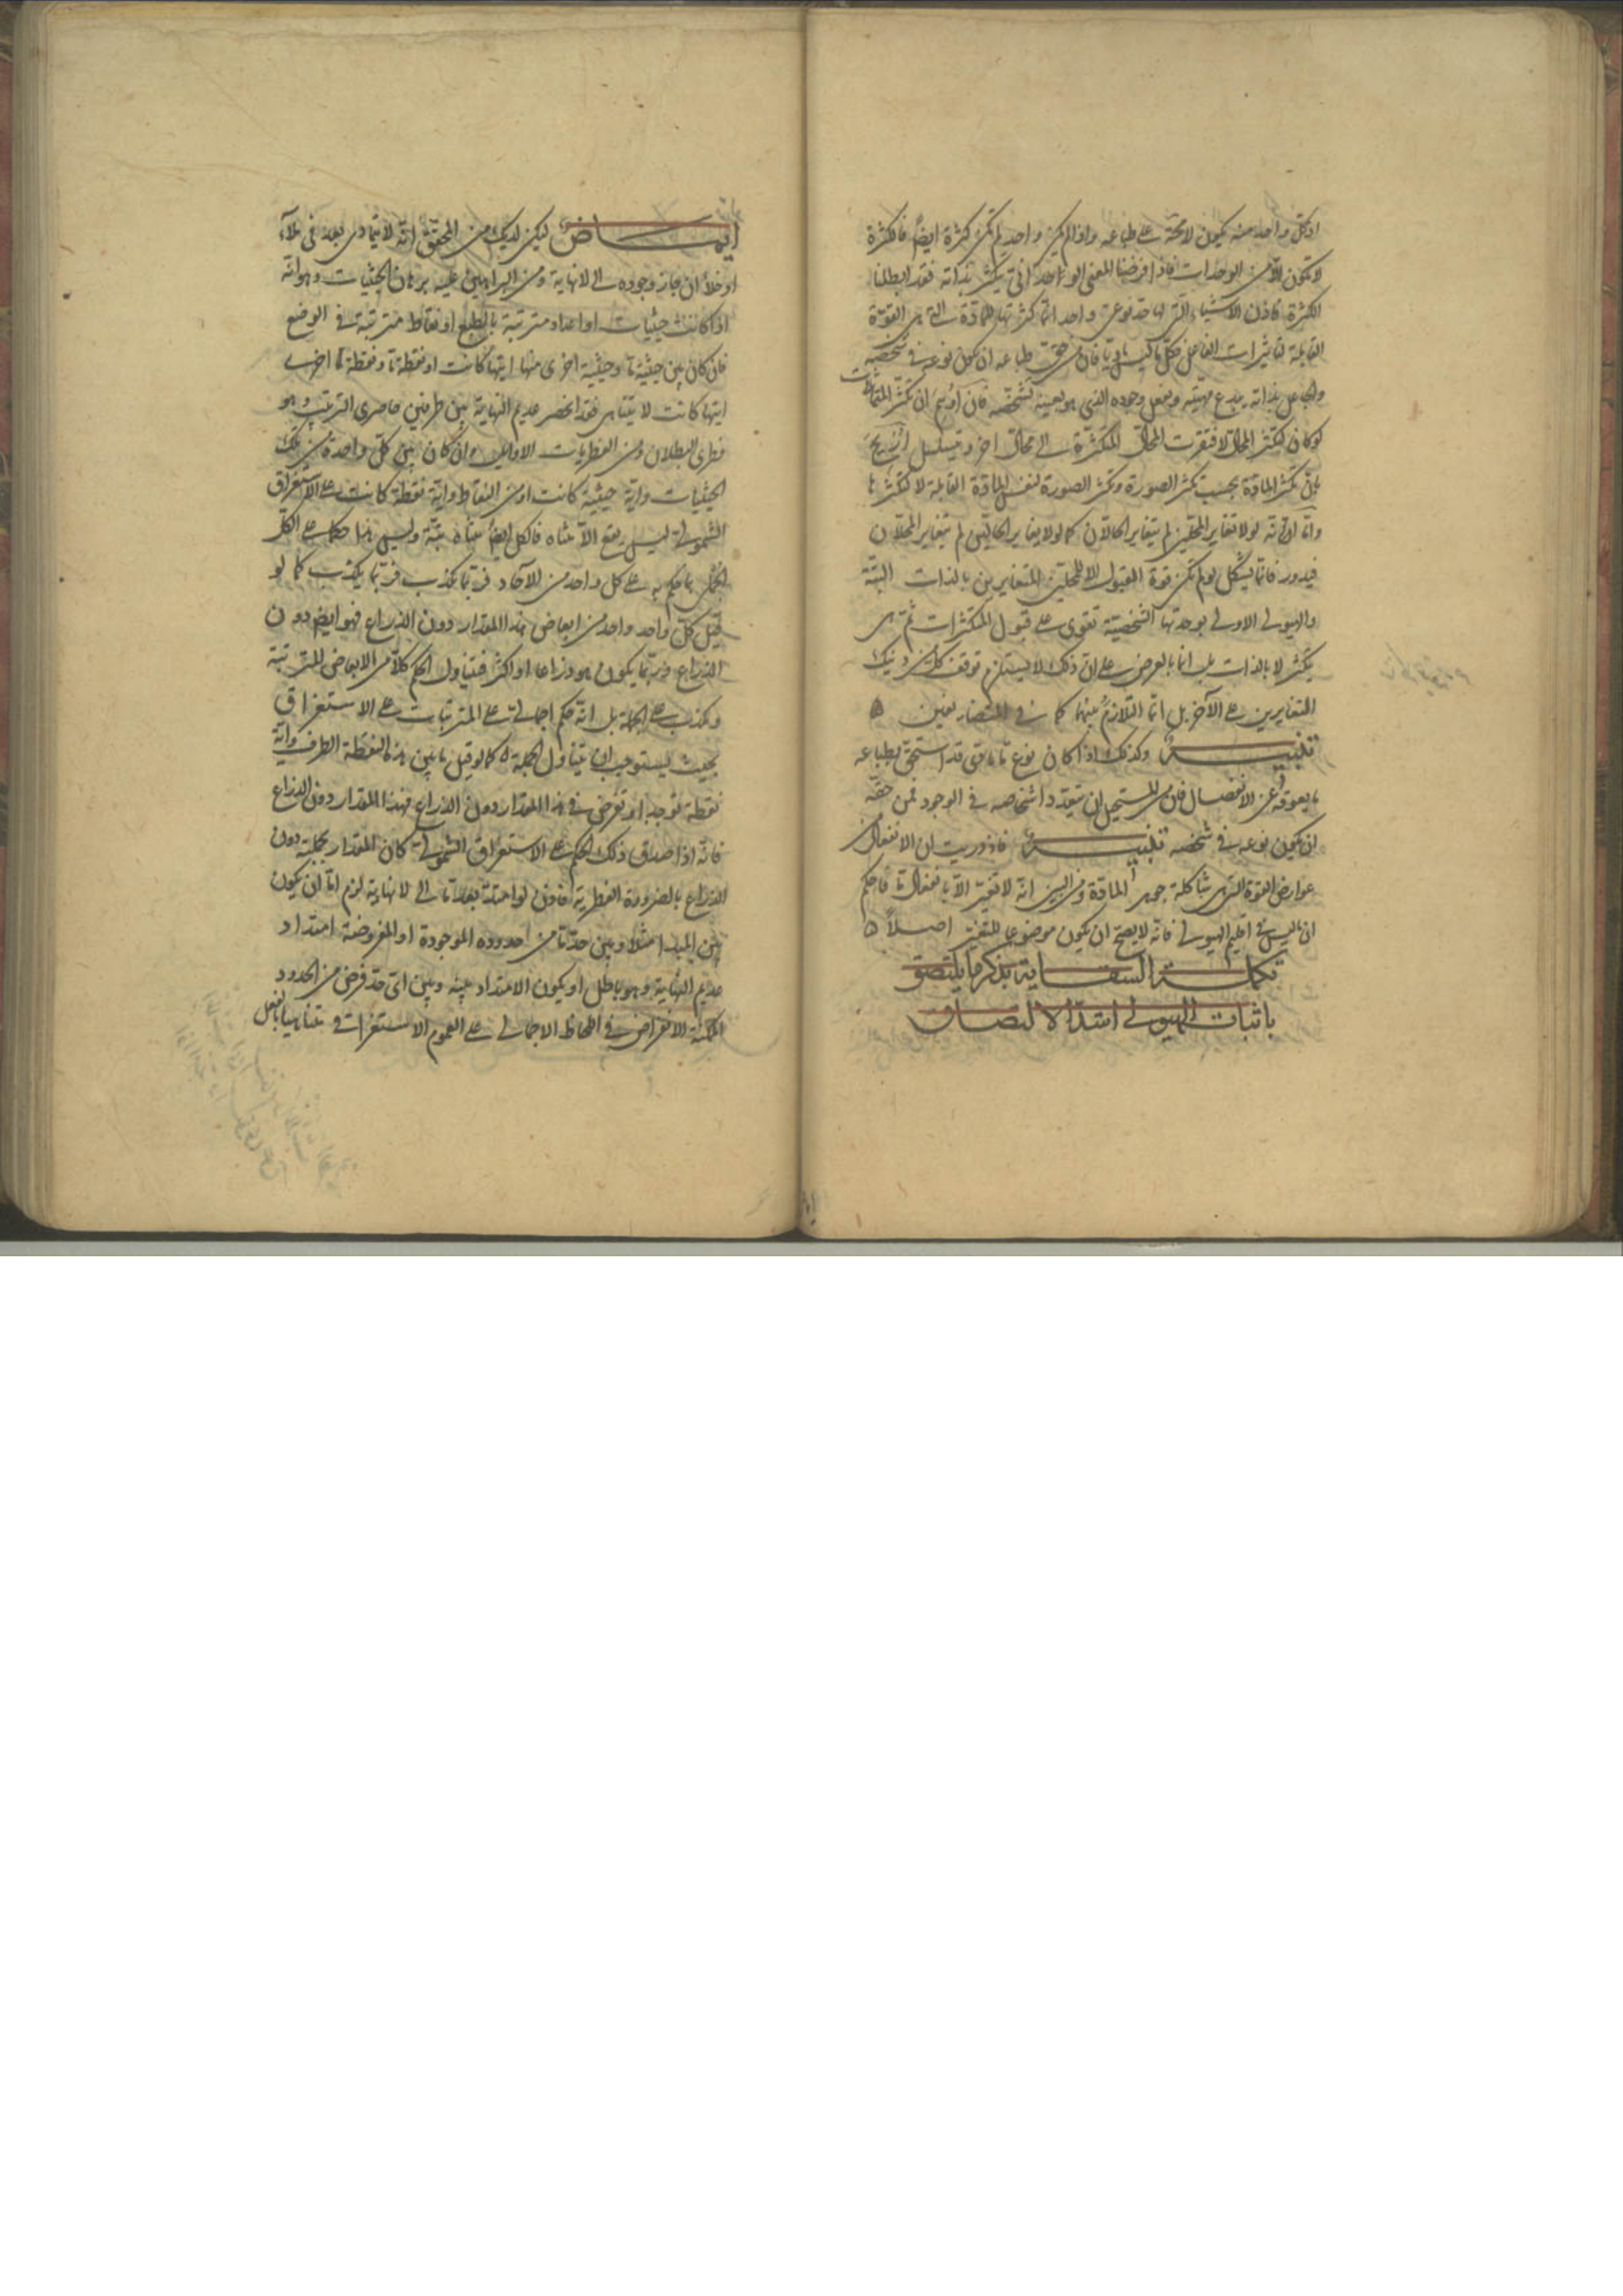 او كل واحد منه يكون لاحقة على طباعه واذا لم يكن واحد لم تكن كثرة ايضا فالكثرة
لا تكون الا من الوحدات فاذا فرضنا المعنى الواحد انى يكثر بذاته فقد ابطلنا
الكثرة فاذن الاشياء التى لها حد نوعى واحد انما كثرتها للمادة التى هى القوة
القابلة لتاثيرات الفاعل فكل ما ليس ماديا فان من حق طباعه ان يكون نوعه فى شخصه
والجاعل بذاته يبدع مهيته ويفعل وجوده الذى هو بعينه تشخصه فان اوهم ان تكثر المتماثلات
لو كان لتكثر المحال لافتقرت المحال المتكثرة الى محال اخر وتسلسل ازيح
بان تكثر المادة بحسب تكثر الصورة وتكثر الصورة لنفس المادة القابلة لا لتكثرها
واما انه لولا تغاير المحلين لم يتغاير الحالان كما لولا يغاير الحالين لم يتغاير المحلان
فيدور فانما يشكل لو لم تكن قوة القبول الا للمحلين المتغايرين بالذات البتة
والهيولى الاولى بوحدتها الشخصية تقوى على قبول المتكثرات ثم هى
يتكثر لا بالذات بل انما بالعرض على ان ذلك لا يستلزم توقف كل من ذينك
المتغايرين على الآخر بل انما التلازم بينهما كما فى المتضايفين ه
تنبيه وكذلك اذا كان نوع ما مادى قد استحق بطباعه
ما يعوقه عن الانفصال فان من المستحيل ان يتعدد اشخاصه فى الوجود فمن حقه
ان يكون نوعه فى شخصه تنبيه فاذ دريت ان الانفعال من
عوارض القوة التى هى شاكلة جوهر المادة ومن البين انه لا تغير الا بانفعال ما فاحكم
ان ما ليس فى اقليم الهيولى فانه لا يصح ان يكون موضوعا للتغير اصلا ه
تكملة السقاية بذكر ما يلتصق
باثبات الهيولى اشد الالتصاق
ايماض ليكن لديك من المحقق انه لا يتمادى بعد فى ملاء
او خلاء ان جاز وجوده الى لا نهاية ومن البراهين عليه برهان الحيثيات وهو انه
اذا كانت حيثيات او اعداد مترتبة بالطبع او نقاط مترتبة فى الوضع
فان كان بين حيثية ما وحيثية اخرى منها ايتها كانت او نقطة ما ونقطة ما اخرى
ايتها كانت لا يتناهى فقد انحصر عديم النهاية بين طرفين حاصرى الترتب وهو
فطرى البطلان ومن الفطريات الاوائل وان كان بين كل واحدة من تلك
الحيثيات واية حيثية كانت او من النقاط واية نقطة كانت على الاستغراق
الشمولى ليس يقع الا متناه فالكل ايضا متناه بتة وليس هذا حكما على الكل
المجملى بما حكم به على كل واحد من الآحاد فربما يكذب كما لو
قيل كل واحد واحد من ابعاض هذا المقدار دون الذراع فهو ايضا دون
الذراع وربما يكون هو ذراعا او اكثر فيتناول الحكم كلا من الابعاض المترتبة
ويكذب على الجملة بل انه حكم اجمالى على المترتبات على الاستغراق
بحيث يستوجب ان يتناول الجملة كما لو قيل ما بين هذه النقطة الطرف واية
نقطة توجد او تفرض فى هذا المقدار دون الذراع فهذا المقدار دون الذراع
فانه اذا صدق ذلك الحكم على الاستغراق الشمولى كان المقدار بجملته دون
الذراع بالضرورة الفطرية فاذن لو امتد بعد ما الى لا نهاية لزم اما ان يكون
بين المبدا مثلا وبين حد ما من حدوده الموجودة او المفروضة امتداد
عديم النهاية وهو باطل او يكون الامتداد بينه وبين اى حد فرض من الحدود
الممكنة الانفراض فى اللحاظ الاجمالى على العموم الاستغراقى متناهيا بالفعل